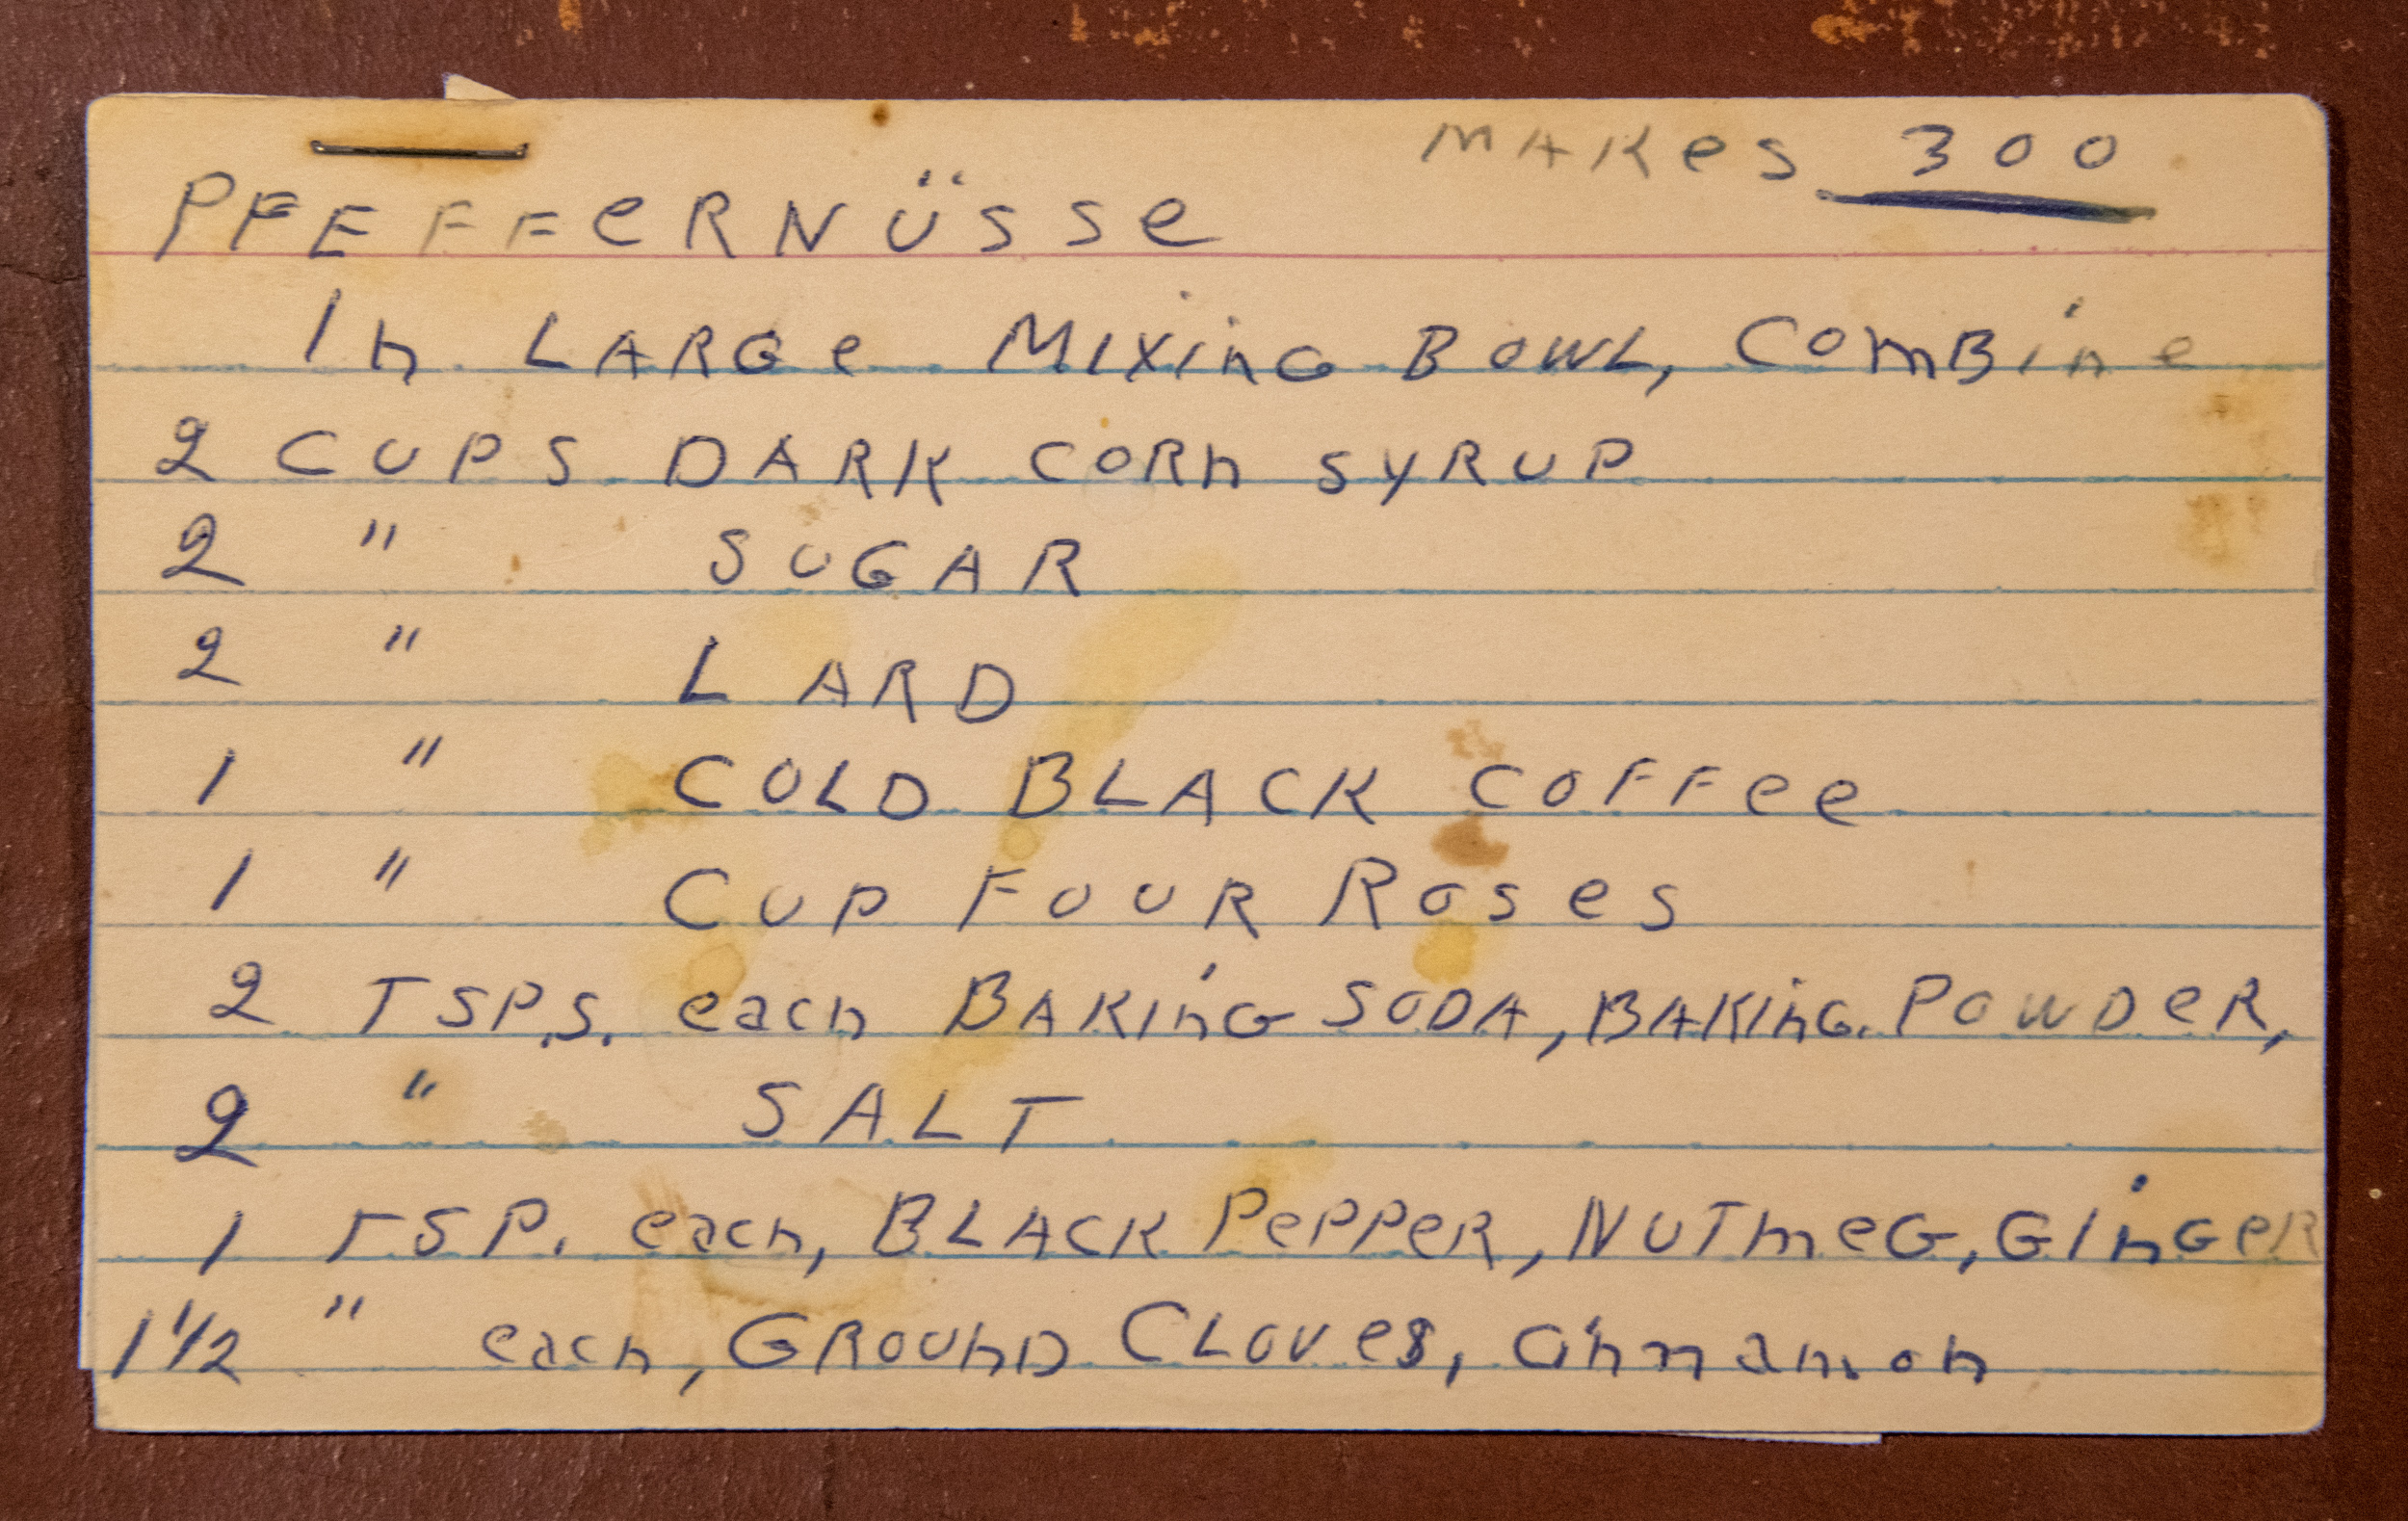 MAKes 300
PFEFFeRNÜSSe
In LARGe MIXinG BOWL, COmBine
2 CUPS DARK CORn SYRUP
2 " SUGAR
2 " LARD
1 " COLD BLACK COFFee
1 " CUP FOUR ROSes
2 TSP.S. each BAKInG SODA, BAKInG POWDeR,
2 " SALT
1 TSP. each, BLACK PePPeR, NUTmeG, GInGeR
1 1/2 " each, GROUnD CLOVes, Cinnamon